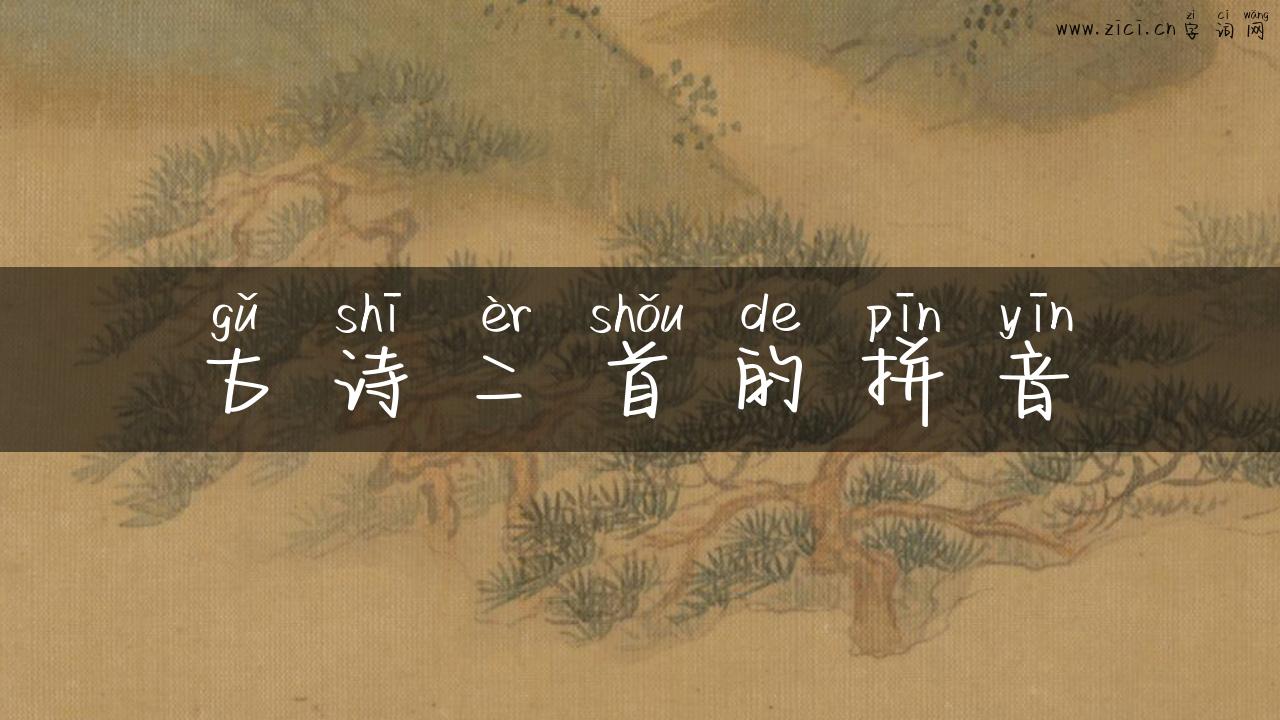 zì cí wǎng
www.zici.cn 字词网
gǔ shī èr shǒu de pīn yīn
古诗二首的拼音